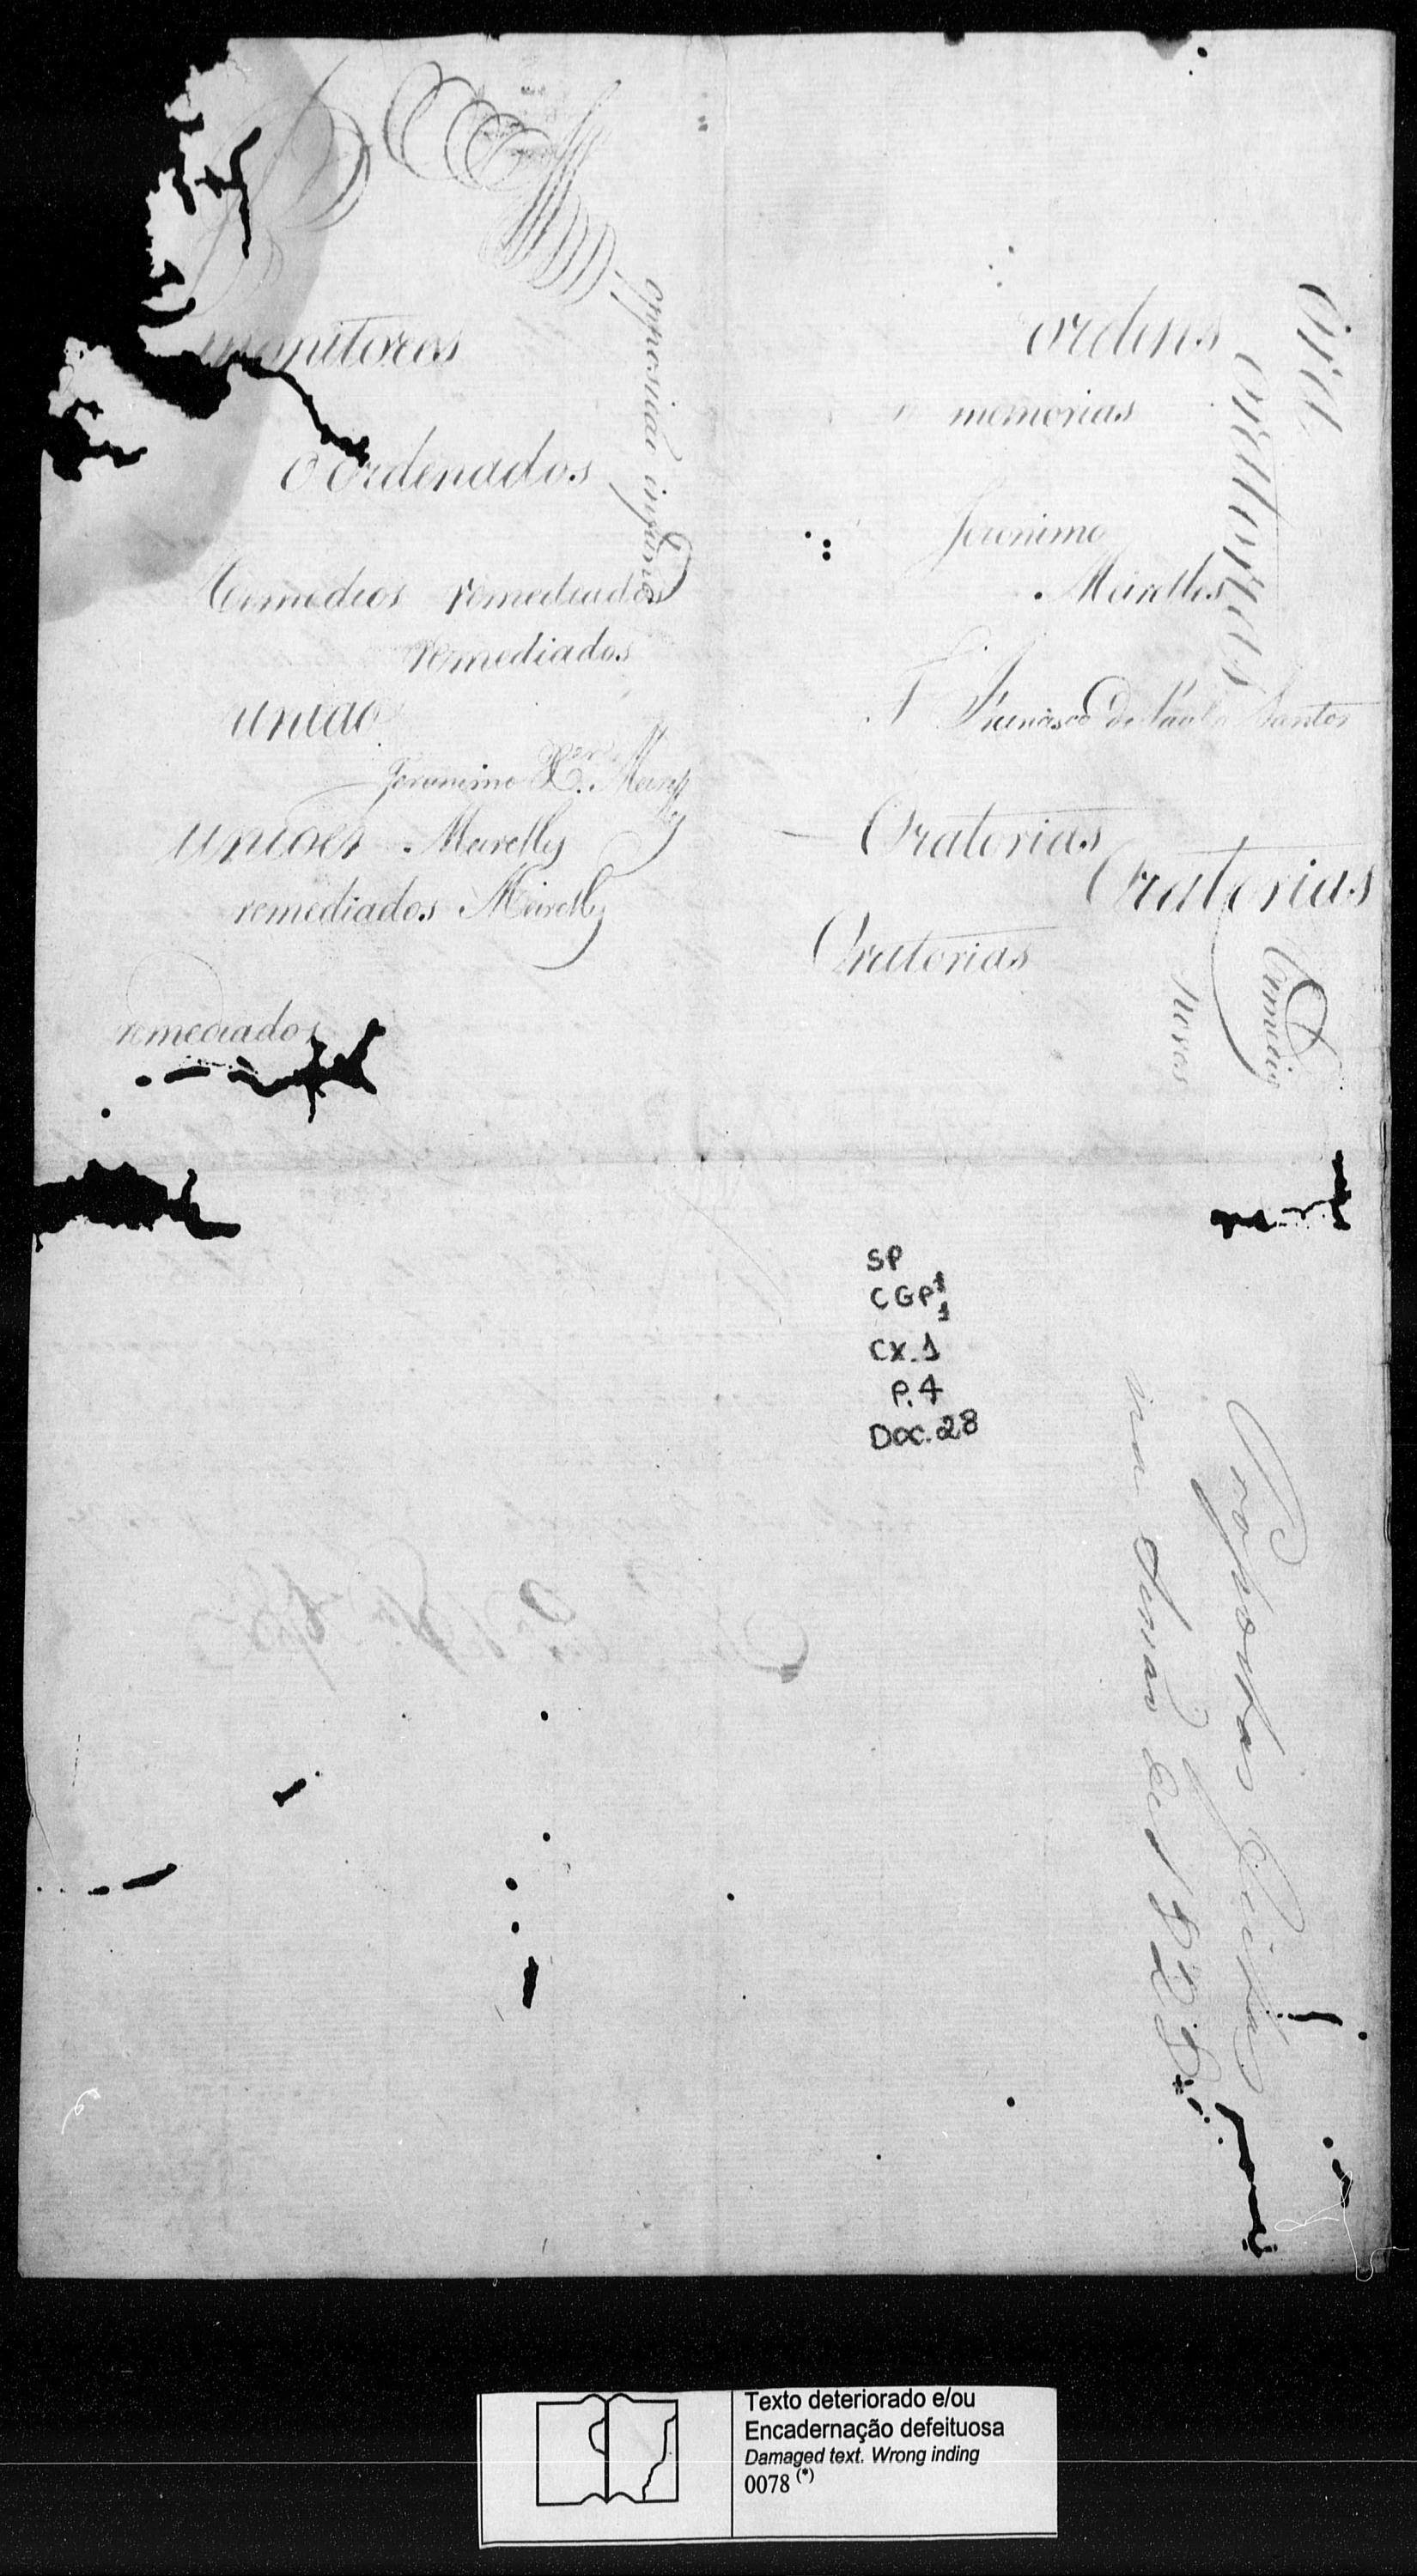 monitores
opposicão infame
o ordenados
Remedios remediados
remediados
união
Jeronimo X.er Meir.es
unioes Meirelles
remediados Meirelles
remediados
ordens
memorias
Jeronimo
Meirelles
F Francisco de Paula Santos
Oratorias
Oratorias
Oratorias
ora
oratorias
Remedio
Novas
SP
CGP1
1
CX.1
P.4
Doc.28
Propostas feitas
na Sessão de 1828
Texto deteriorado e/ou
Encadernação defeituosa
Damaged text. Wrong inding
0078 (*)